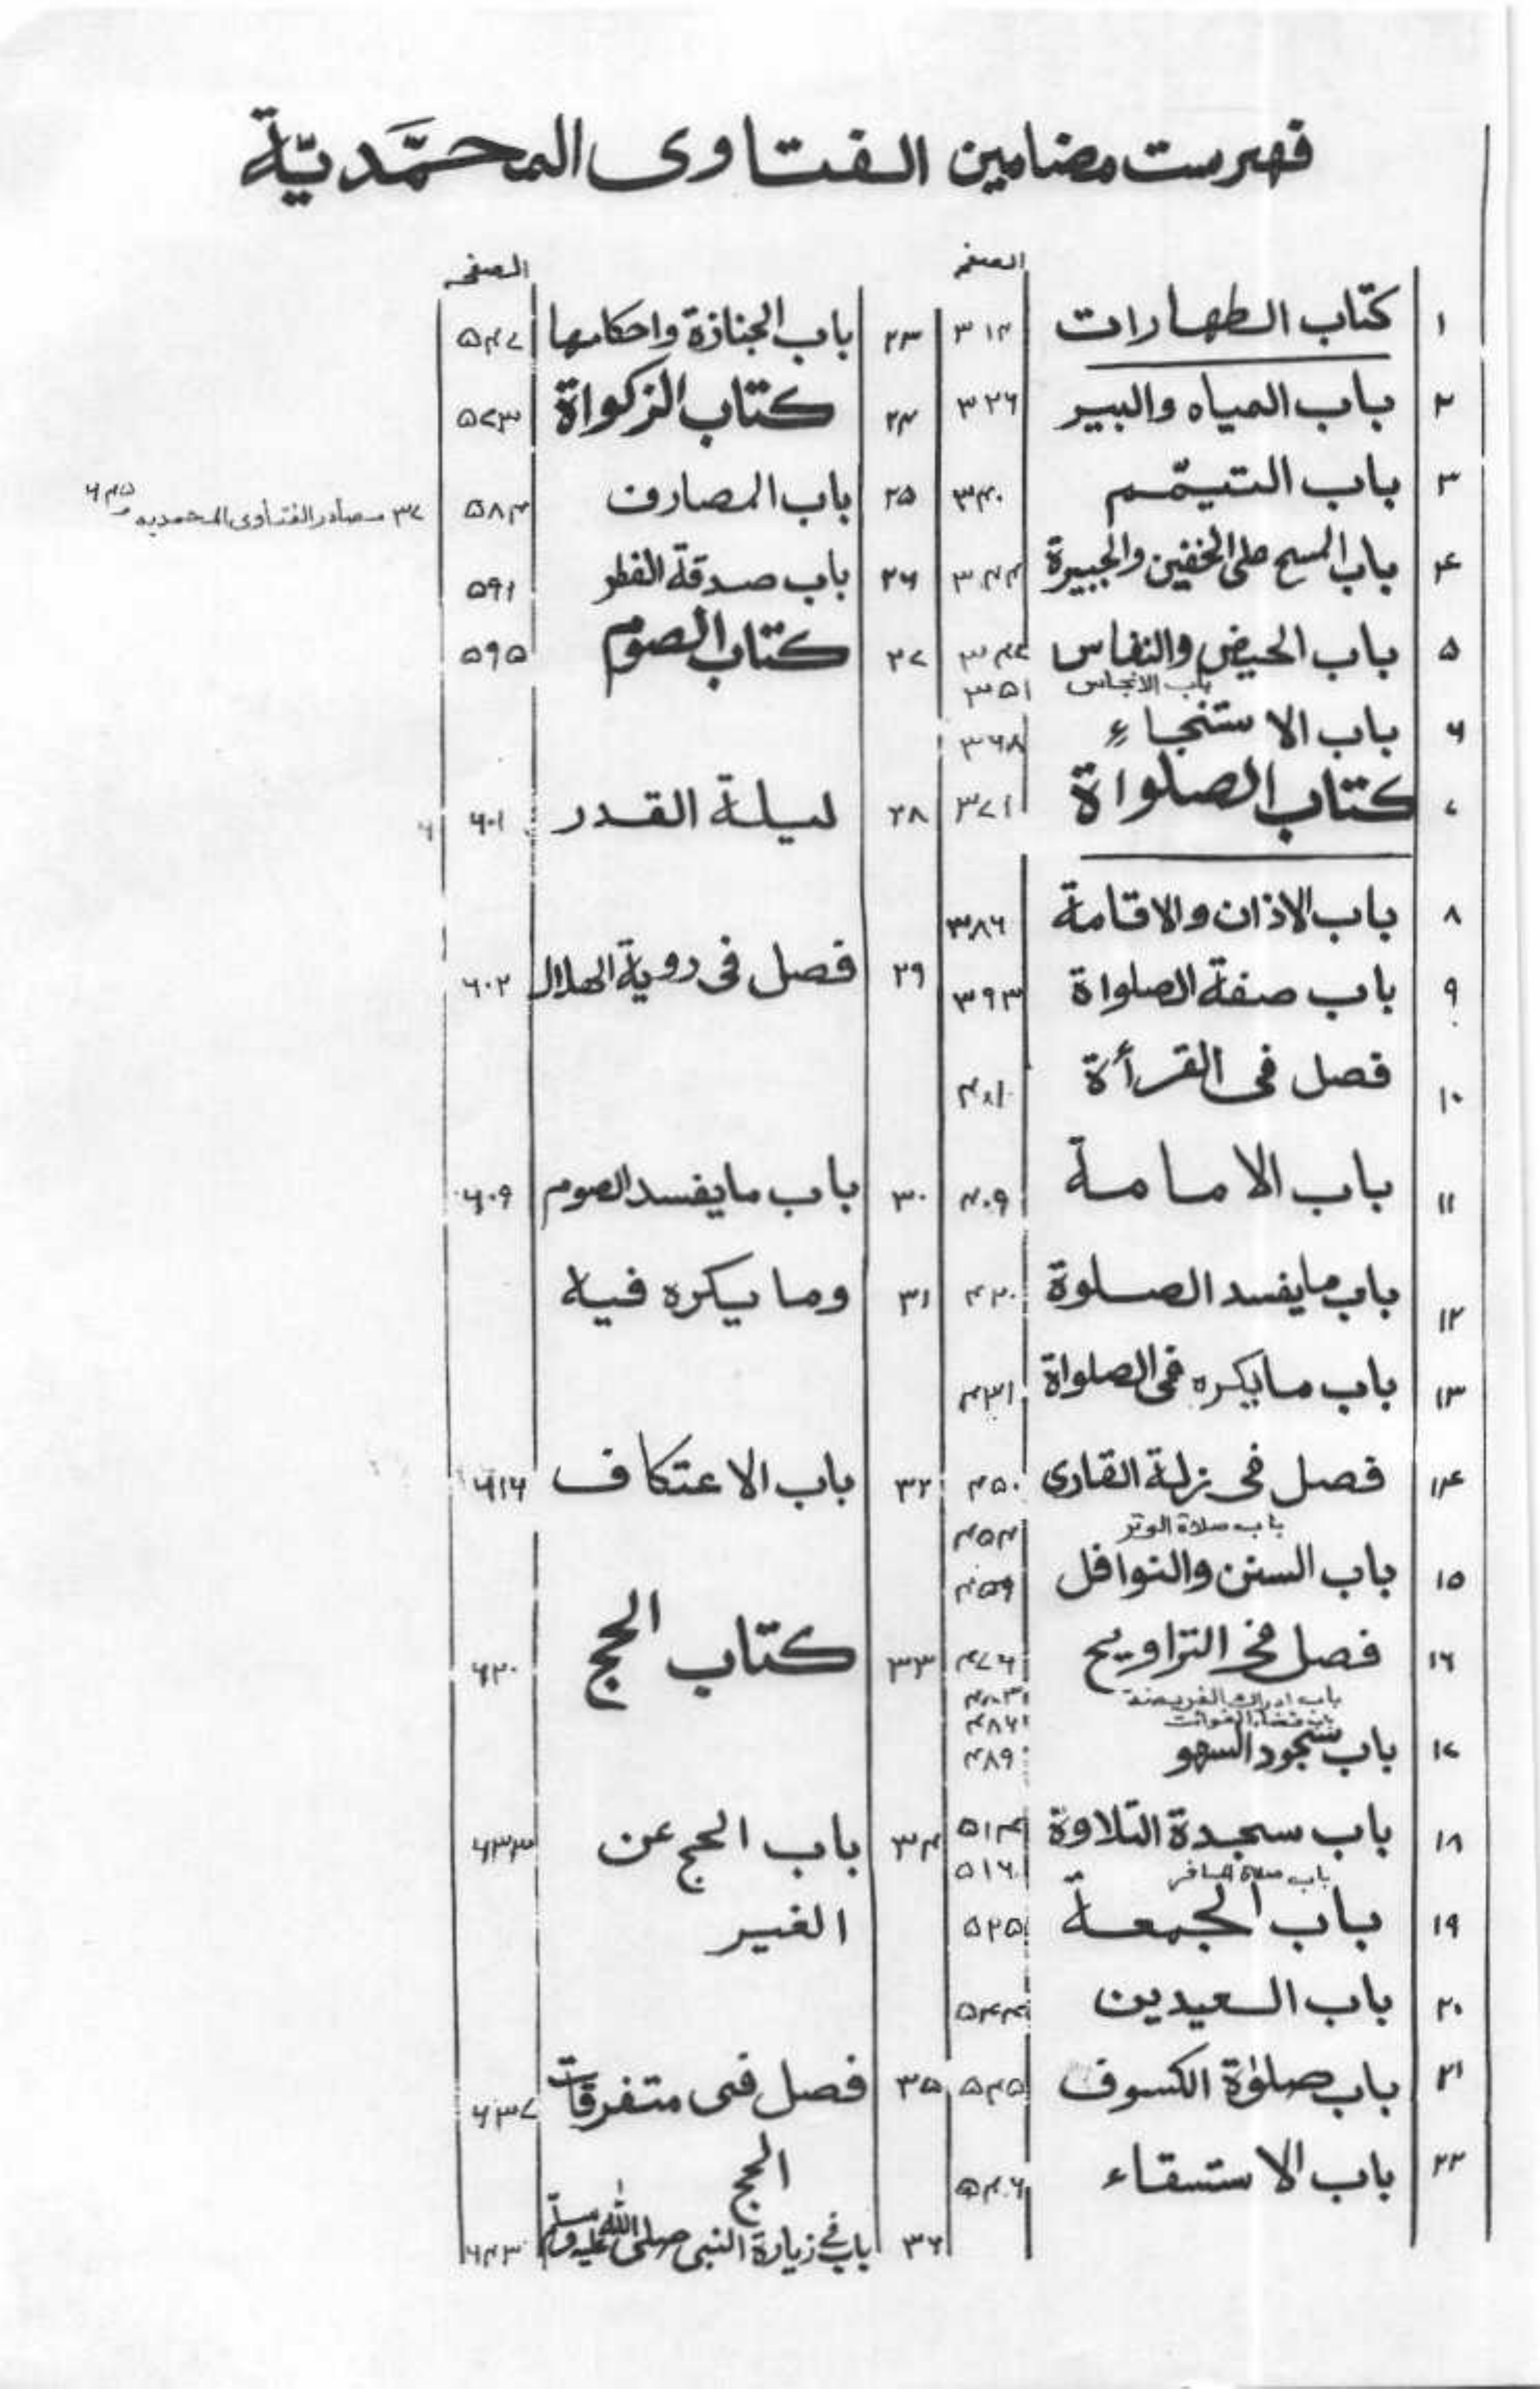 فهرست مضامين الفتاوى المحمَّديّة
الصفحه
١ كتاب الطهارات ٣١٤
٢ باب المياه والبير ٣٢٦
٣ باب التيمّم ٣٤٠
٤ باب المسح على الخفين والجبيرة ٣٤٤
٥ باب الحيض والنفاس ٣٤٧
باب الانجاس ٣٥١
٦ باب الاستنجاءِ ٣٦٨
٧ كتاب الصلواة ٣٧١
٨ باب الاذان والاقامة ٣٨٦
٩ باب صفة الصلواة ٣٩٣
١٠ فصل فى القرأة
١١ باب الامامة ٤٠٩
١٢ باب مايفسد الصلوة ٤٢٠
١٣ باب مايكره فى الصلواة ٤٣١
١٤ فصل فى زلة القارى ٤٥٠
باب صلاة الوتر ٤٥٤
١٥ باب السنن والنوافل ٤٥٩
١٦ فصل فى التراويح ٤٧٦
باب ادراك الفريضة ٤٨٣
باب قضاء الفوائت ٤٨٦
١٧ باب سجود السهو ٤٨٩
١٨ باب سجدة التلاوة ٥١٤
باب صلاة المسافر ٥١٦
١٩ باب الجمعة ٥٢٥
٢٠ باب العيدين ٥٤٤
٢١ باب صلوٰة الكسوف ٥٤٥
٢٢ باب الاستسقاء ٥٤٦
الصفحه
٢٣ باب الجنازة واحكامها ٥٤٧
٢٤ كتاب الزكواة ٥٧٣
٢٥ باب المصارف ٥٨٤
٢٦ باب صدقة الفطر ٥٩١
٢٧ كتاب الصوم ٥٩٥
٢٨ ليلة القدر ٦٠١
٢٩ فصل فى روية الهلال ٦٠٢
٣٠ باب مايفسد الصوم ٦٠٩
٣١ وما يكره فيه
٣٢ باب الاعتكاف ٦١٦
٣٣ كتاب الحج ٦٢٠
٣٤ باب الحج عن ٦٣٣
الغير
٣٥ فصل فى متفرقات ٦٣٧
الحج
٣٦ باب فى زيارة النبى صلى الله عليه وسلم ٦٤٣
٣٧ مصادر الفتاوى المحمديه ٦٤٥